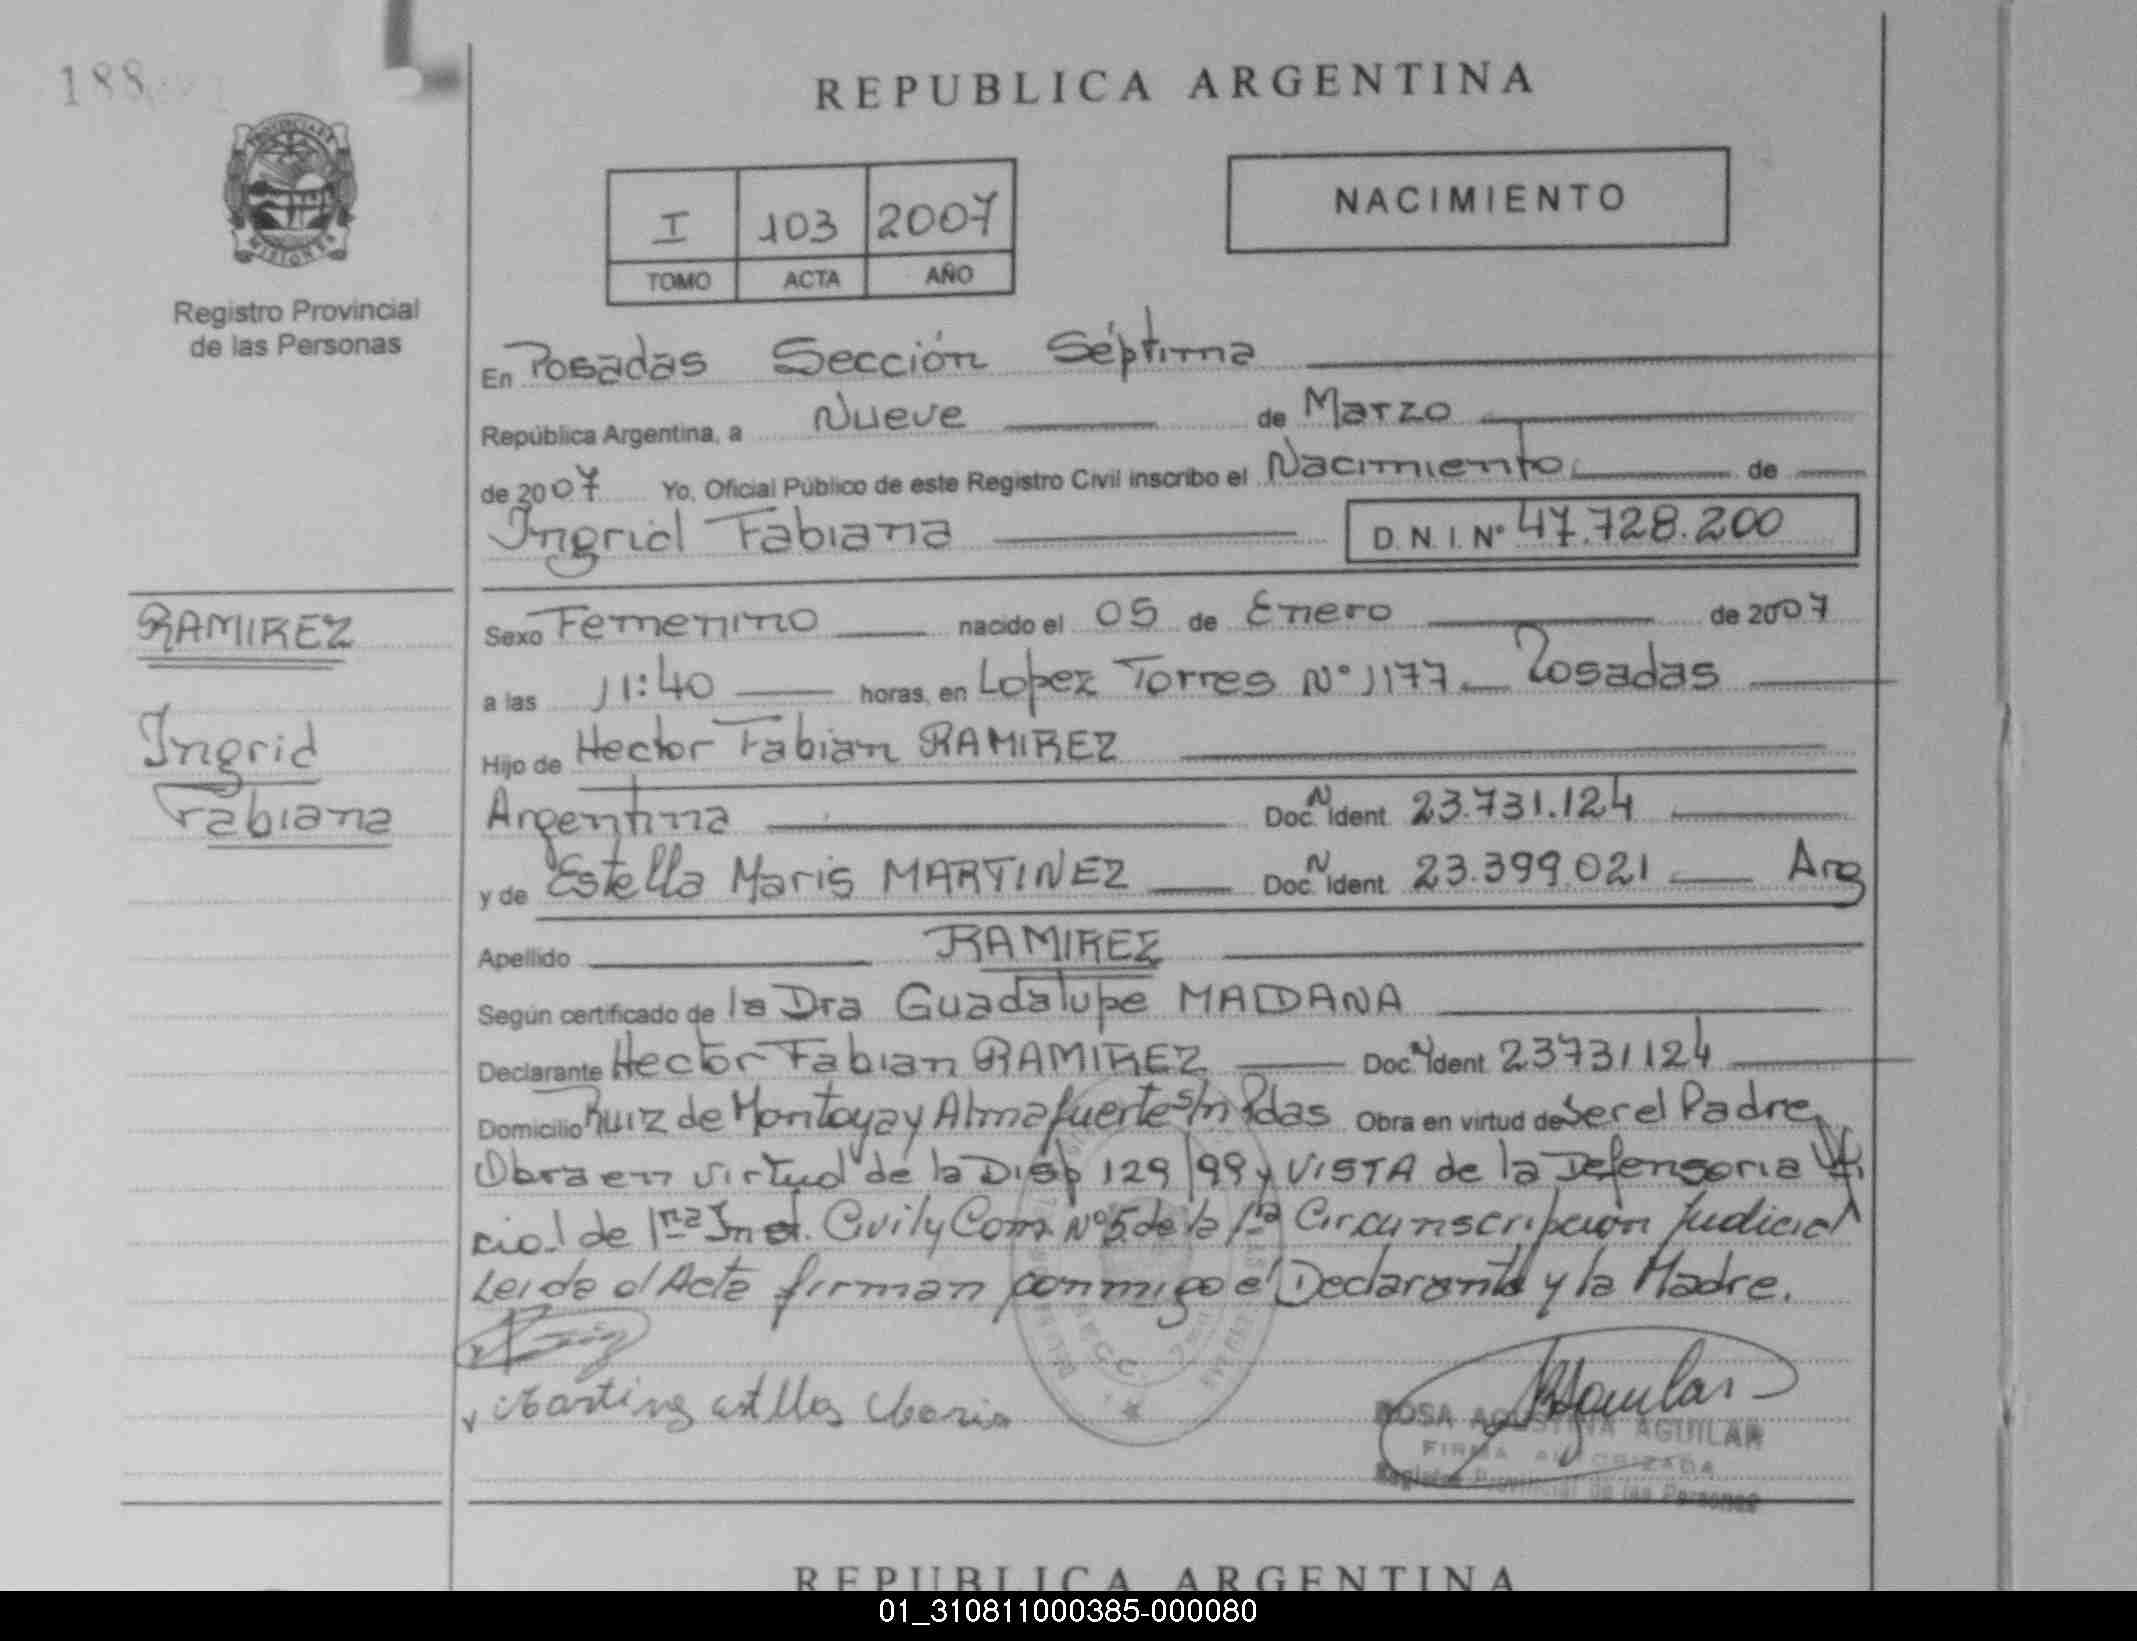 188
REPUBLICA ARGENTINA
PROVINCIA DE
MISIONES
Registro Provincial
de las Personas
I 103 2007
TOMO ACTA AÑO
NACIMIENTO
En Posadas Sección Séptima
República Argentina, a Nueve de Marzo
de 2007 Yo, Oficial Público de este Registro Civil inscribo el Nacimiento de
Ingrid Fabiana D.N.I. Nº 47.728.200
RAMIREZ
Ingrid
Fabiana
Sexo Femenino nacido el 05 de Enero de 2007
a las 11:40 horas, en Lopez Torres Nº 1177 Posadas
Hijo de Hector Fabian RAMIREZ
Argentina Doc. N Ident 23.731.124
y de Estella Maris MARTINEZ Doc. N Ident 23.399.021 Arg
Apellido RAMIREZ
Según certificado de la Dra Guadalupe MAIDANA
Declarante Hector Fabian RAMIREZ Doc. N Ident 23731124
Domicilio Ruiz de Montoya y Almafuerte s/n Pdas Obra en virtud de Ser el Padre
Obra en virtud de la Disp 129/99 y VISTA de la Defensoria Ofi
cial de 1ra Inst. Civil y Com. Nº 5 de la 1ra Circunscripción Judicial
Leida el Acta firman conmigo el Declarante y la Madre.
Martinez Estella Maris
ROSA AGUSTINA AGUILAR
FIRMA AUTORIZADA
Registro Provincial de las Personas
REPUBLICA ARGENTINA
01_310811000385-000080